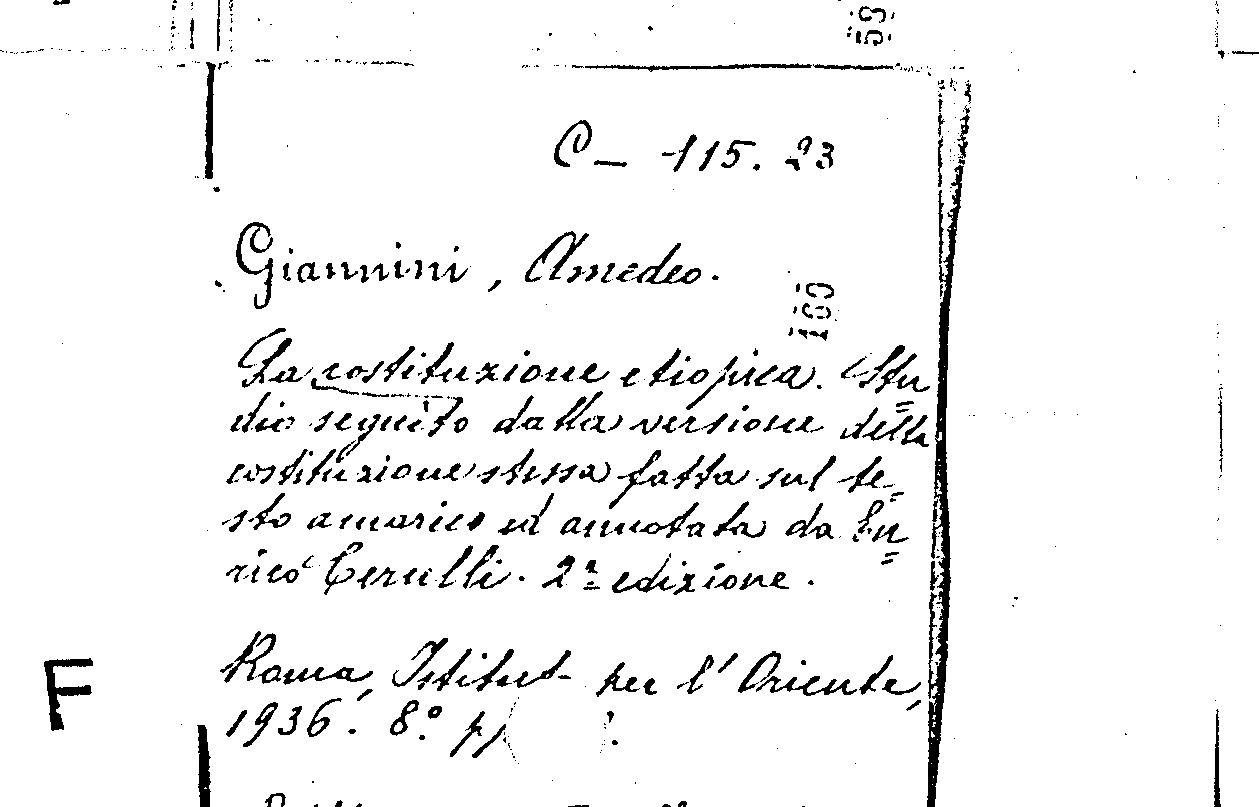 59
C — 115. 23
Giannini, Amedeo.
100
La costituzione etiopica. Stu=
dio seguito dalla versione della
costituzione stessa fatta sul te=
sto amarico ed annotata da En=
rico Cerulli. 2ª edizione.
Roma, Istitut- per l' Oriente,
F
1936. 8.º pp